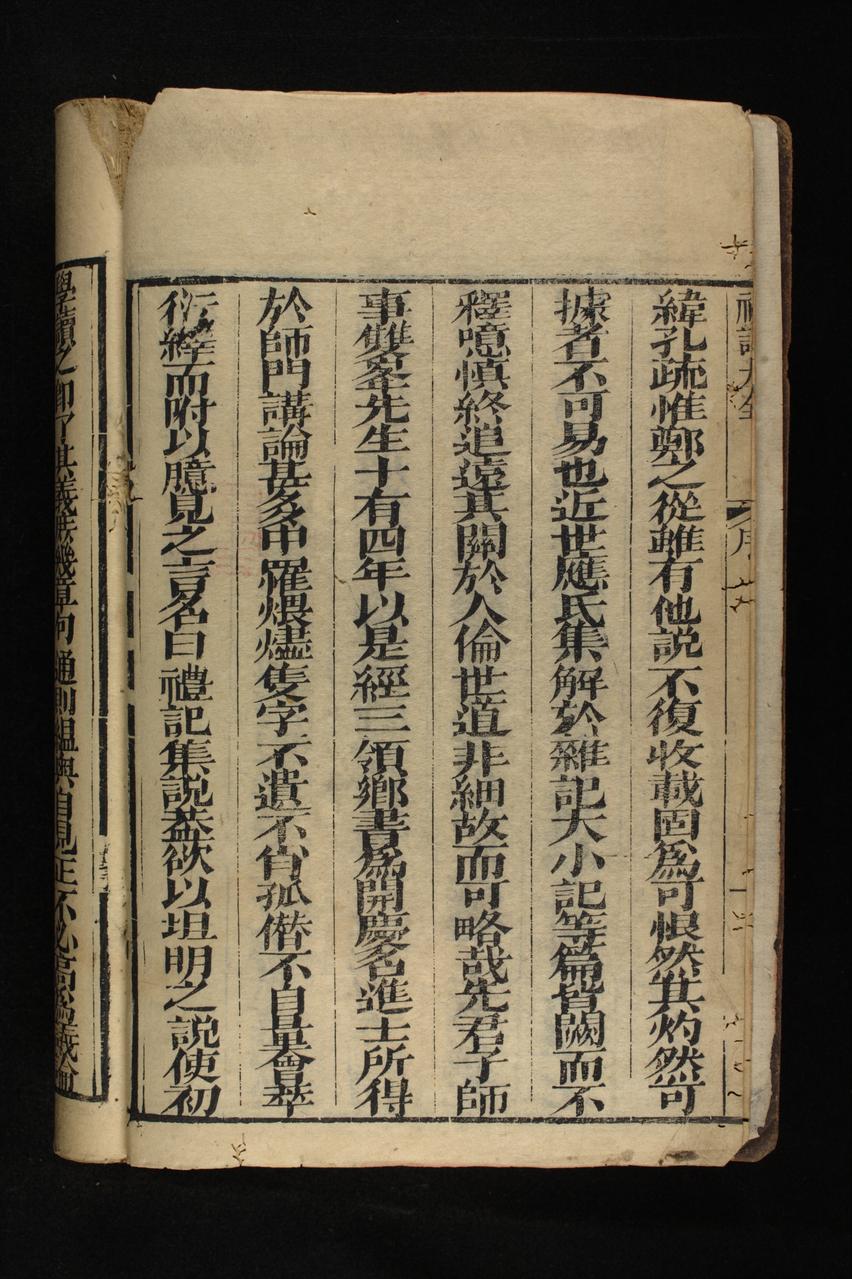 禮記大全 序
緯孔疏惟鄭之從雖有他說不復收載固爲可恨然其灼然可
據者不可易也近世應氏集解於雜記大小記等篇皆闕而不
釋噫慎終追遠其關於人倫世道非細故而可略哉先君子師
事雙峯先生十有四年以是經三領鄉書爲開慶名進士所得
於師門講論甚多中罹煨燼隻字不遺不肖孤僭不自量會萃
衍繹而附以臆見之言名曰禮記集說蓋欲以坦明之說使初
學讀之即了其義庶幾章句通則縕奧自見正不必高爲議論